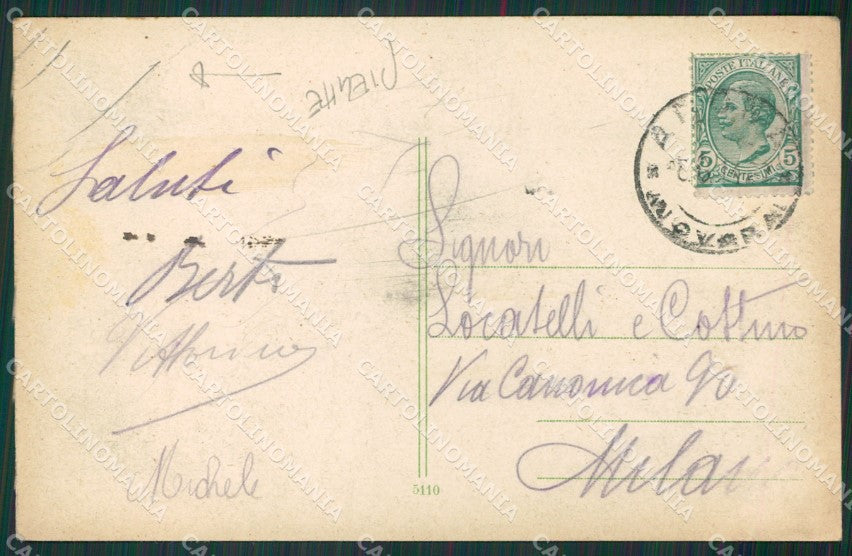 PIEGHE
Saluti
Berta
Vittorino
Michele
5110
POSTE ITALIANE
5 CENTESIMI 5
Signori
Locatelli e Cottino
Via Canonica 90
Milano
CARTOLINOMANIA